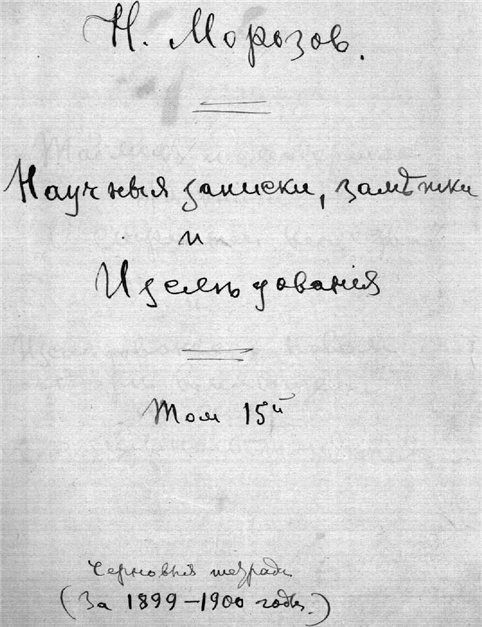 Н. Морозов.
Научныя записки, замѣтки
и
Изслѣдованія
Том 15й
Черновыя тетради
(За 1899–1900 годы.)